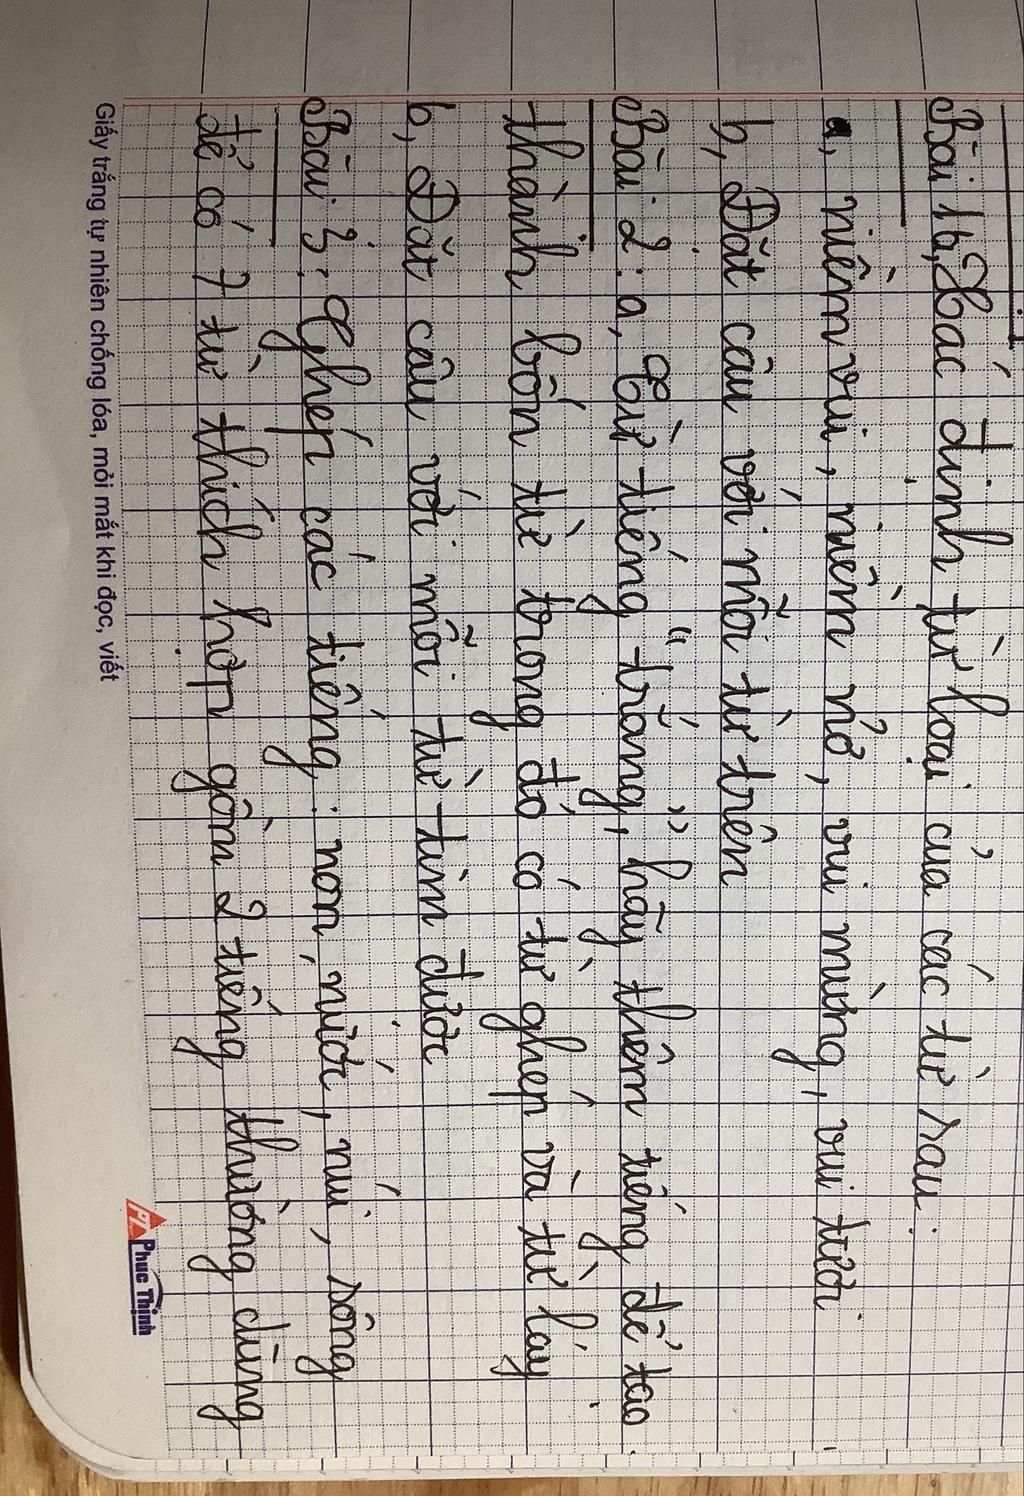 Bài 1b, Xác định từ loại của các từ sau:
a, niềm vui, niềm nở, vui mừng, vui tươi
b, Đặt câu với mỗi từ trên
Bài 2: a, Từ tiếng "trắng", hãy thêm tiếng để tạo
thành bốn từ trong đó có từ ghép và từ láy
b, Đặt câu với mỗi từ tìm được
Bài 3: Ghép các tiếng: non, nước, núi, sông
để có 7 từ thích hợp gồm 2 tiếng thường dùng
Giấy trắng tự nhiên chống lóa, mỏi mắt khi đọc, viết
Phuc Thinh